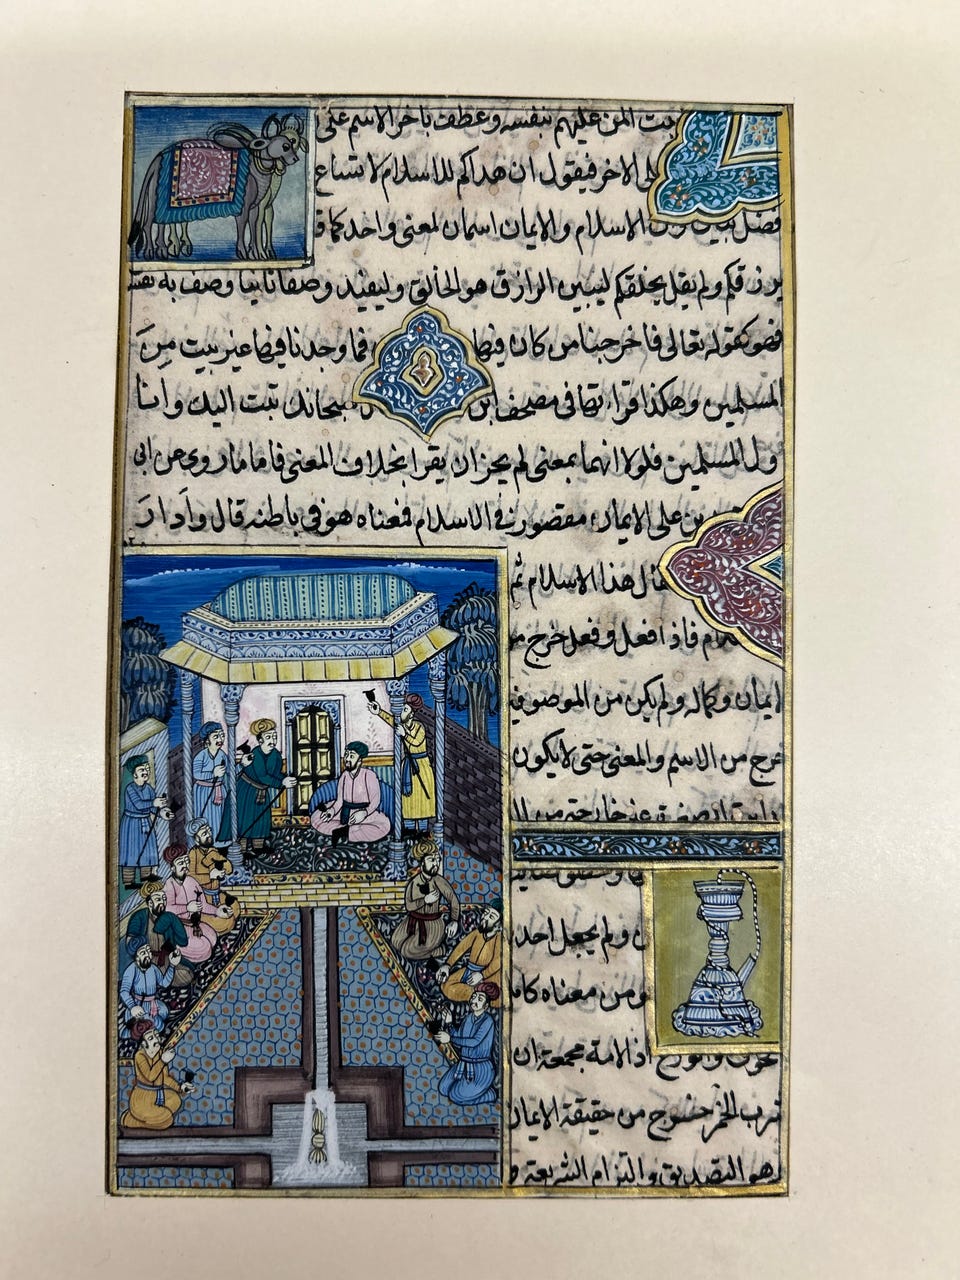 بت المن عليهم بنفسه وعطف باخر الاسم على
لى الاخر فيقول ان هداكم للاسلام لا تساع
فضل الاسلام والايمان اسمان لمعنى واحد كما ق
يرزقكم ولم يقل يخلقكم ليبين الرازق هو الخالق وليفيد وصفا ثانيا وصف به نفسه
فهو كقوله تعالى فاخرجنا من كان فيها فما وجدنا فيها غير بيت من
المسلمين وهكذا قراتها في مصحف ابن سبحانك تبت اليك وانا
ول المسلمين فلولا انهما بمعنى لم يجز ان يقرا بخلاف المعنى فاما ماروى عن ابى
على الايمان مقصور في الاسلام فمعناه هو في باطنه قال وادار
هذا الاسلام ثم
فاذا فعل وفعل خرج م
لايمان وكماله ولم يكن من الموصوفي
خرج من الاسم والمعنى حتى لا يكون
ولم يجعل احد
من معناه كاما
اذ الامة مجمعة ان
شرب الخمر خروج من حقيقة الايمان
وهو التصديق والتزام الشريعة و